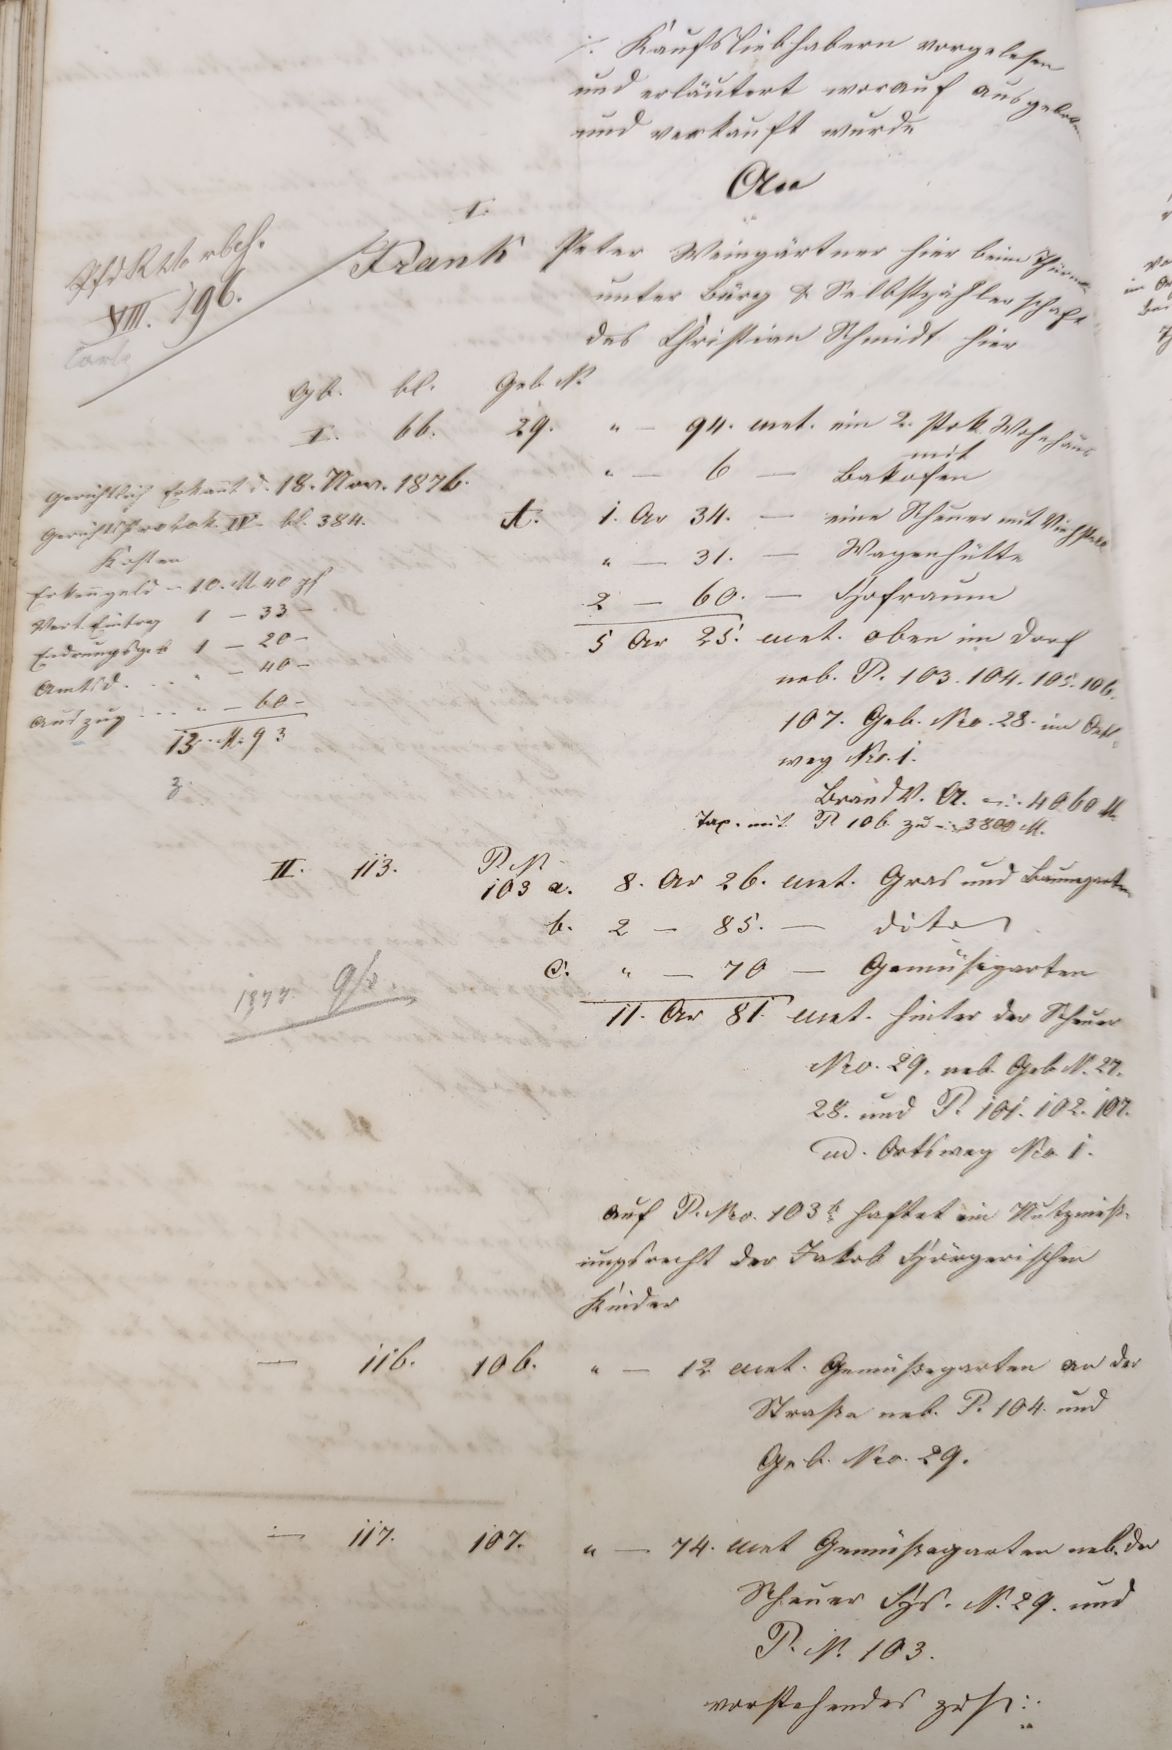 ·/· Kaufsliebhabern vorgelesen
und erläutert worauf ausgeboten
und verkauft wurde
An
I.
Frank Peter Weingärtner hier beim Thurm
unter Bürg & Selbstzahlerschaft
des Christian Schmidt hier
VIII. 196.
Gb. bl. Geb. N.
I. 66. 29. " — 94. met. ein 2. stok. Wohnhaus
mit
" — 6 — Bakofen
A. 1. Ar 34. — eine Scheuer mit Viehstall
" — 31. — Wagenhütte
2 — 60. — Hofraum
5 Ar 25. met. oben im Dorf
neb. P. 103. 104. 105. 106.
107. Geb. Nro. 28. im Orts-
weg Nro. 1.
Brand V. A. -:- 4060 M.
Tax. mit P. 106 zu -:- 3800 M.
Gerichtlich Erkannt d. 18. Nov. 1876.
Gerichtsprotok. IV. bl. 384.
Kosten
Erkenngeld — 10. M 40 pf
Vert. Eintrag 1 — 33 —
1 — 20 —
Amtsd. . . . " — 40 —
Auszug . . . " — 60 —
13. M. 93
II. 113. P. N.
103 a. 8. Ar 26. met. Gras und Baumgarten
b. 2 — 85. — dito
c. " — 70 — Gemüsegarten
11. Ar 81. met. hinter der Scheuer
Nro. 29. neb. Geb. N. 27.
28. und P. 101. 102. 107.
u. Ortsweg Nro. 1.
1877.
auf P. Nro. 103 b haftet ein Nutznieß-
ungsrecht der Jakob Hörgerischen
Kinder
— 116. 106. " — 12 met. Gemüßegarten an der
Straße neb. P. 104. und
Geb. Nro. 29.
— 117. 107. " — 74. met Gemüßegarten neb. der
Scheuer Hs. N. 29. und
P. N. 103.
vorstehendes zus. :/: